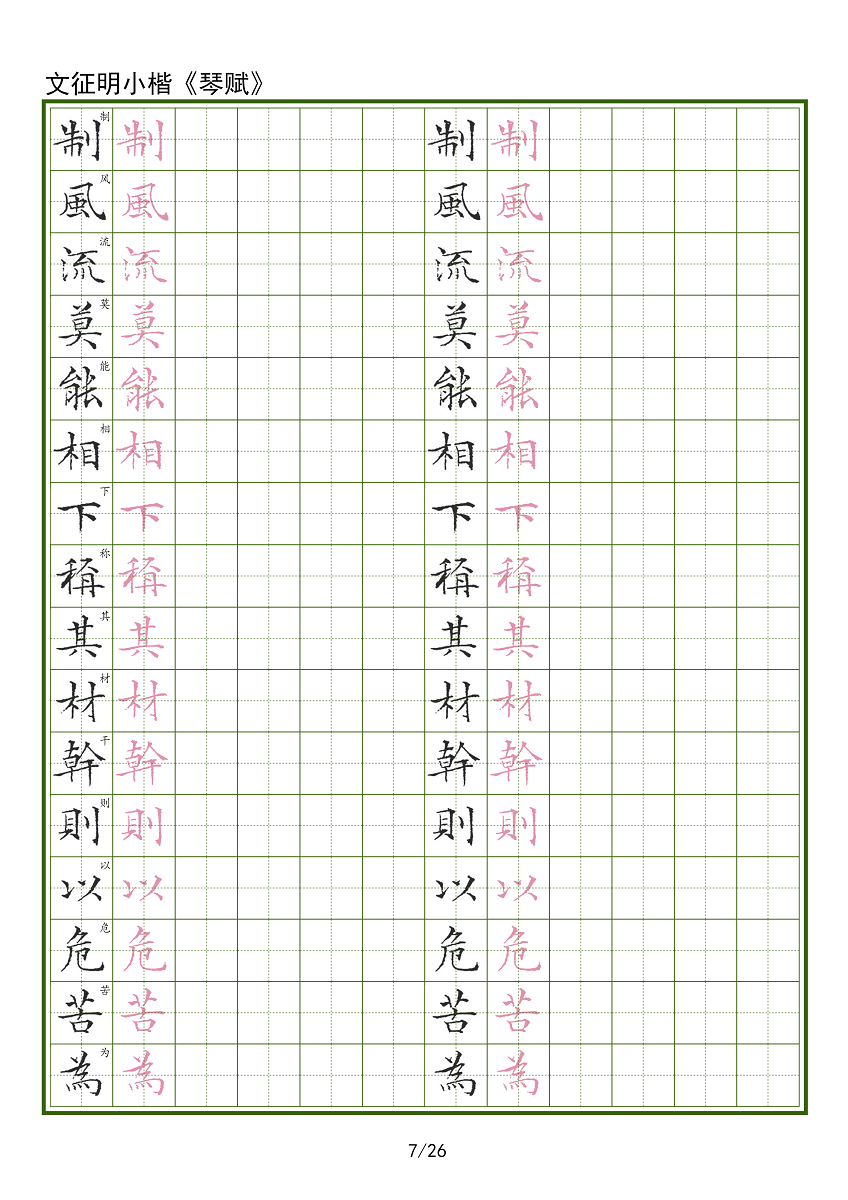 文征明小楷《琴赋》
制 制 制 制 制
風 风 風 風 風
流 流 流 流 流
莫 莫 莫 莫 莫
能 能 能 能 能
相 相 相 相 相
下 下 下 下 下
稱 称 稱 稱 稱
其 其 其 其 其
材 材 材 材 材
幹 干 幹 幹 幹
則 则 則 則 則
以 以 以 以 以
危 危 危 危 危
苦 苦 苦 苦 苦
為 为 為 為 為
7/26